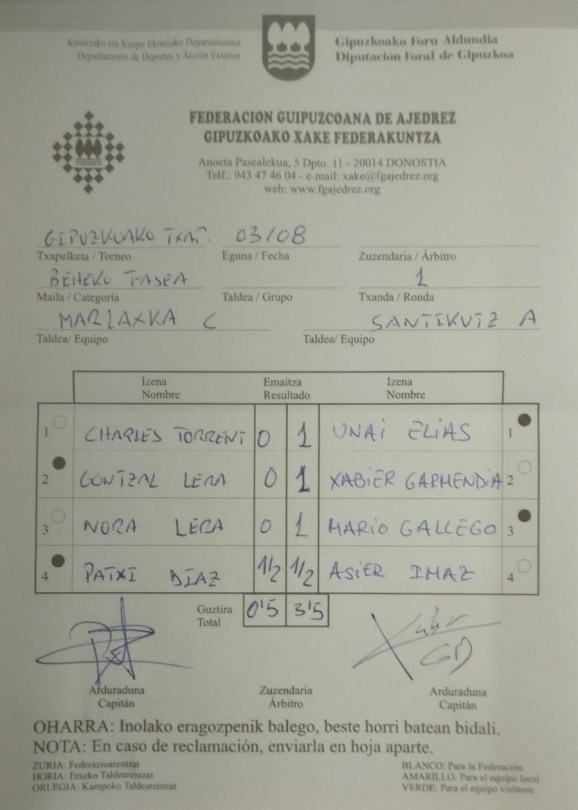 Kirolerako eta Kanpo Ekintzako Departamentua
Departamento de Deportes y Acción Exterior
Gipuzkoako Foru Aldundia
Diputación Foral de Gipuzkoa
FEDERACION GUIPUZCOANA DE AJEDREZ
GIPUZKOAKO XAKE FEDERAKUNTZA
Anoeta Pasealekua, 5 Dpto. 11 - 20014 DONOSTIA
Telf.: 943 47 46 04 - e-mail: xake@fgajedrez.org
web: www.fgajedrez.org
GIPUZKOAKO TXAP. 03/08
Txapelketa / Torneo Eguna / Fecha Zuzendaria / Árbitro
BEHEKO FASEA 1
Maila / Categoria Taldea / Grupo Txanda / Ronda
MARLAXKA C SANTIKUTZ A
Taldea/ Equipo Taldea/ Equipo
Izena Emaitza Izena
Nombre Resultado Nombre
1 CHARLES TORRENT 0 1 UNAI ELIAS 1
2 GONTZAL LERA 0 1 XABIER GARMENDIA 2
3 NORA LERA 0 1 MARIO GALLEGO 3
4 PATXI DIAZ 1/2 1/2 ASIER IMAZ 4
Guztira 0'5 3'5
Total
Xabier
GD
Arduraduna Zuzendaria Arduraduna
Capitán Árbitro Capitán
OHARRA: Inolako eragozpenik balego, beste horri batean bidali.
NOTA: En caso de reclamación, enviarla en hoja aparte.
ZURIA: Federazioarentzat BLANCO: Para la Federación
HORIA: Etxeko Taldearentzat AMARILLO: Para el equipo local
ORLEGIA: Kampoko Taldearentzat VERDE: Para el equipo visitante